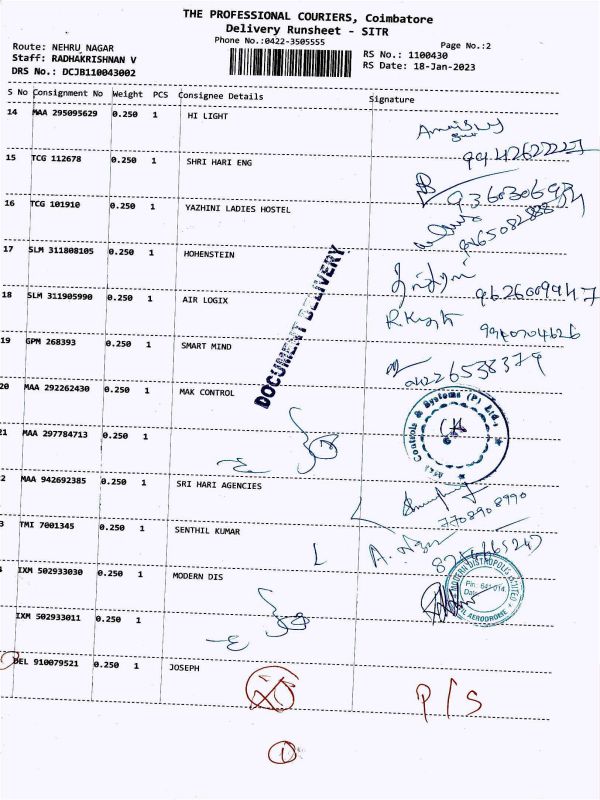 THE PROFESSIONAL COURIERS, Coimbatore
Delivery Runsheet - SITR
Phone No.:0422-3505555
Page No.:2
Route: NEHRU NAGAR
Staff: RADHAKRISHNAN V
DRS No.: DCJB110043002
RS No.: 1100430
RS Date: 18-Jan-2023
S No Consignment No Weight PCS Consignee Details Signature
14 MAA 295095629 0.250 1 HI LIGHT
15 TCG 112678 0.250 1 SHRI HARI ENG
16 TCG 101910 0.250 1 YAZHINI LADIES HOSTEL
17 SLM 311808105 0.250 1 HOHENSTEIN
18 SLM 311905990 0.250 1 AIR LOGIX
19 GPM 268393 0.250 1 SMART MIND
20 MAA 292262430 0.250 1 MAK CONTROL
21 MAA 297784713 0.250 1
2 MAA 942692385 0.250 1 SRI HARI AGENCIES
7708908990
3 TMI 7001345 0.250 1 SENTHIL KUMAR
IXM 502933030 0.250 1 MODERN DIS
IXM 502933011 0.250 1
DEL 910079521 0.250 1 JOSEPH P/S
DOCUMENT DELIVERY
Controls & Systems (P) Ltd.
MODERN DISTROPOLIS LIMITED
Pin: 641 014
Date
CIVIL AERODROME
1